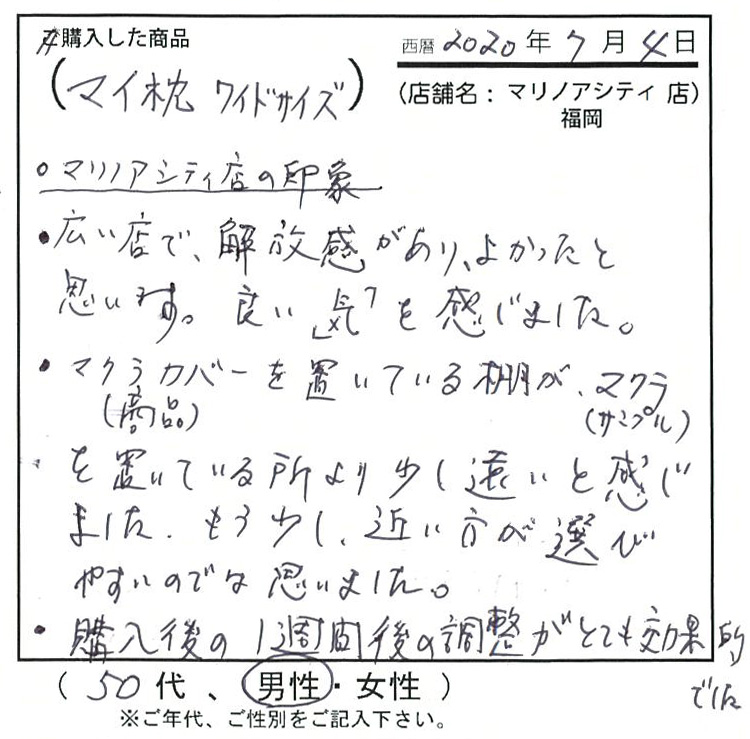 ご購入した商品
西暦 2020 年 7 月 4 日
(マイ枕 ワイドサイズ)
(店舗名： マリノアシティ 店)
福岡
○マリノアシティ店の印象
・広い店で、解放感があり、よかったと
思います。良い「気」を感じました。
・マクラカバーを置いている棚が、マクラ
(商品)
(サンプル)
を置いている所より少し遠いと感じ
ました。もう少し、近い方が選び
やすいのでな 思いました。
・購入後の1週間後の調整がとても効果的
でした
( 50 代 、 男性・女性 )
※ご年代、ご性別をご記入下さい。